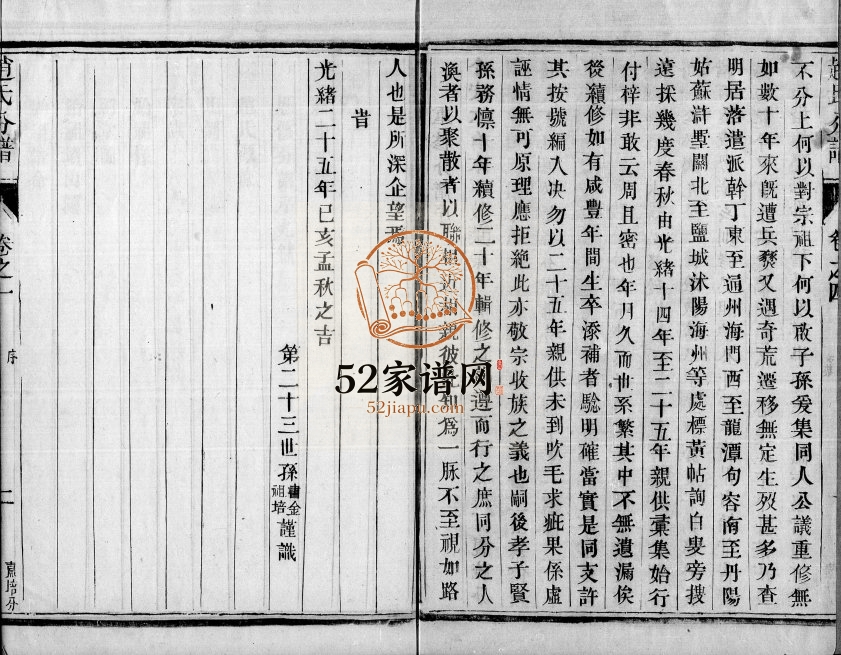 趙氏分譜
卷之四
不分上何以對宗祖下何以敢子孫爰集同人公議重修無
如數十年來旣遭兵燹又遇奇荒遷移無定生歿甚多乃查
明居落遣派幹丁東至通州海門西至龍潭句容南至丹陽
姑蘇滸墅關北至鹽城沭陽海州等處標黃帖詢白叟旁搜
遠採幾度春秋由光緒十四年至二十五年親供彙集始行
付梓非敢云周且密也年月久而世系繁其中不無遺漏俟
後續修如有咸豐年間生卒添補者騐明確當實是同支許
其按號編入决勿以二十五年親供未到吹毛求疵果係虛
誣情無可原理應拒絕此亦敬宗收族之義也嗣後孝子賢
孫務懍十年續修二十年輯修之 遵而行之庶同分之人
渙者以聚散者以聯 親彼 知爲一脉不至視如路
人也是所深企望焉
旹
光緒二十五年己亥孟秋之吉
第二十三世孫 金 祖培 謹識
趙氏分譜
卷之一
序
二
52家谱网
52jiapu.com